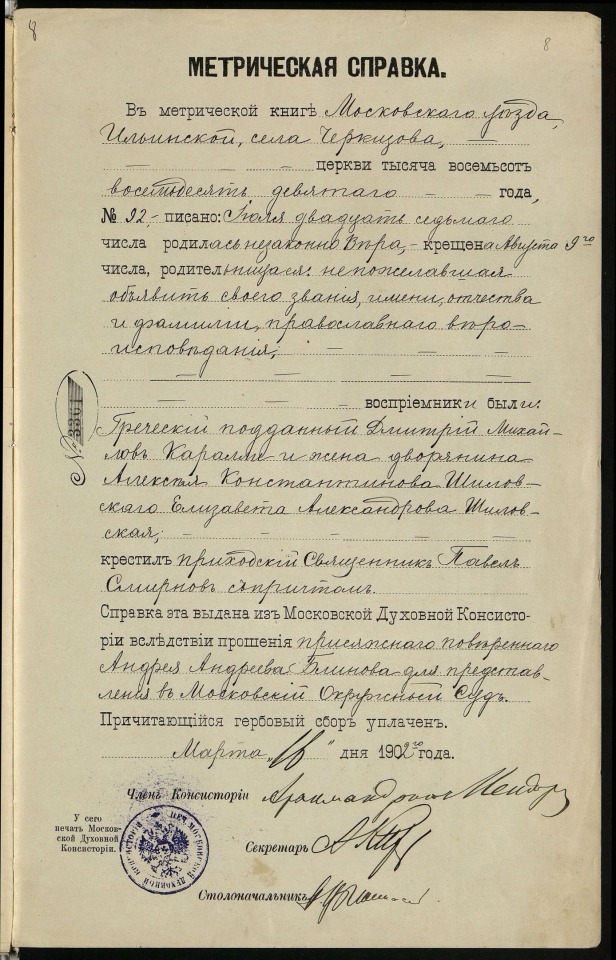 8
8
МЕТРИЧЕСКАЯ СПРАВКА.
Въ метрической книгѣ Московскаго уѣзда,
Ильинской, села Черкизова, —
— — — — церкви тысяча восемьсотъ
восемьдесятъ девятаго — — года,
№ 92,- писано: Іюля двадцать седьмаго
числа родилась незаконно Вѣра,- крещена Августа 9го
числа, родительница ея: непожелавшая
объявить своего званія, имени, отчества
и фамиліи, православнаго вѣро-
исповѣданія; — — —
— — — —
— — — — воспріемники были:
Греческій подданный Дмитрій Михай-
ловъ Каралли и жена дворянина
Алексѣя Константинова Шилов-
скаго Елизавета Александрова Шилов-
ская; — — — — —
крестилъ приходскій Священникъ Павелъ
Смирновъ съ причтомъ.
Справка эта выдана изъ Московской Духовной Консисто-
ріи вслѣдствіи прошенія присяжнаго повѣреннаго
Андрея Андреева Блинова для представ-
ленія въ Московскій Окружный Судъ.
Причитающійся гербовый сборъ уплаченъ.
Марта „16" дня 1902го года.
№ 3301
Членъ Консисторіи Архимандритъ
У сего
печать Москов-
ской Духовной
Консисторіи.
ПЕЧ. МОСКОВСКОЙ ДУХОВНОЙ КОНСИСТОРІИ
Секретарь
Столоначальникъ